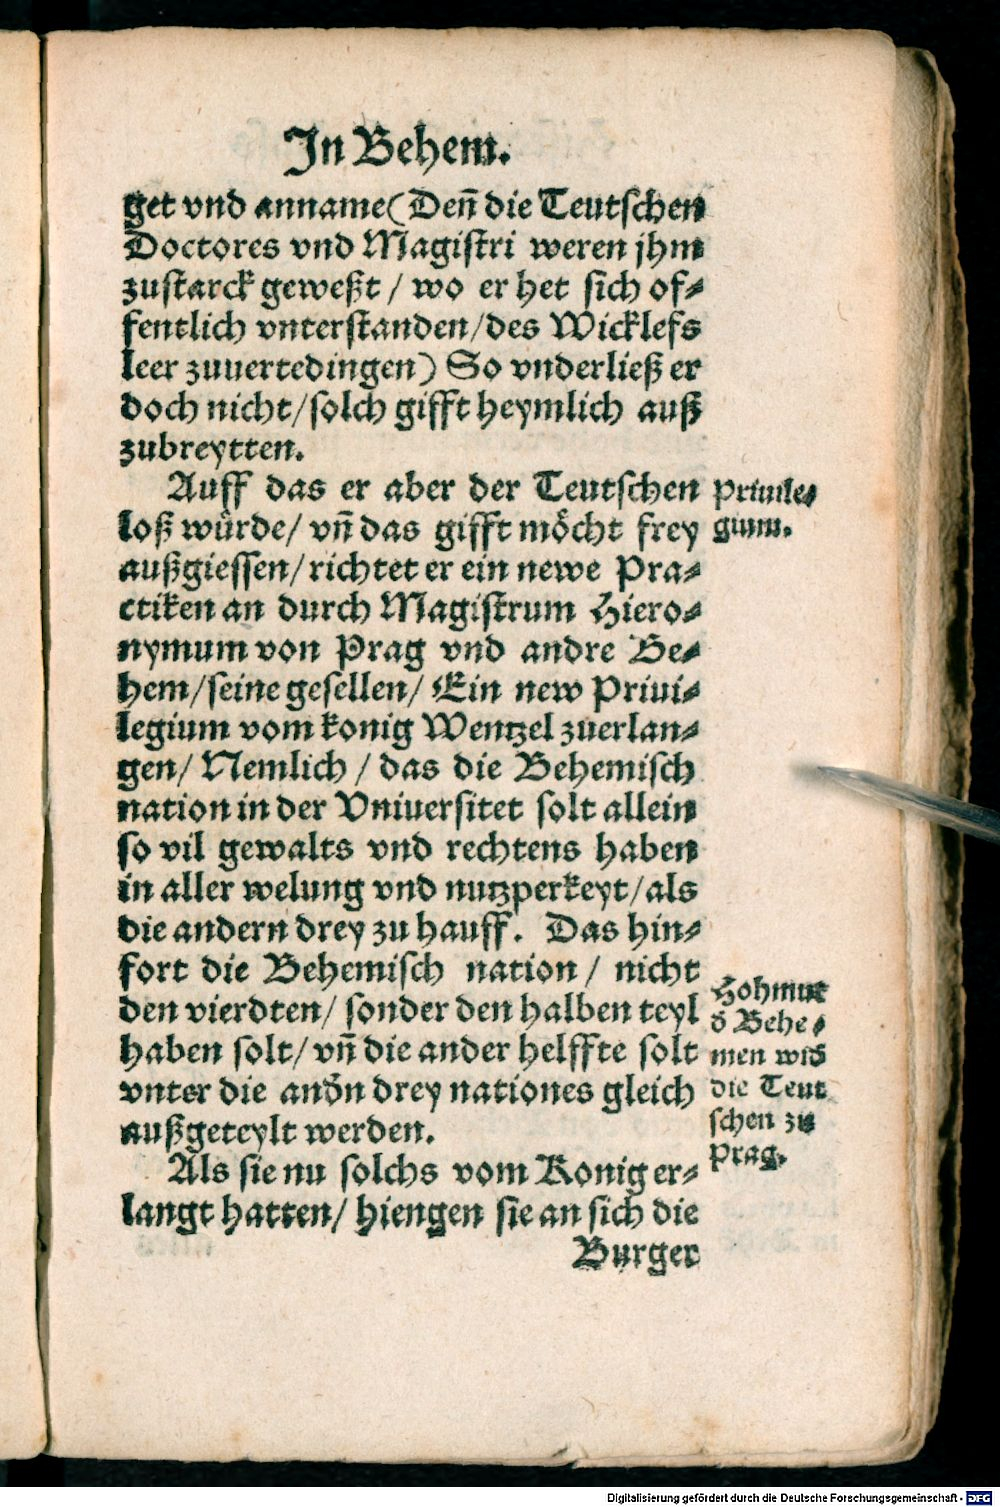 In Behem.
get vnd anname(Deñ die Teutschen
Doctores vnd Magistri weren jhm
zustarck geweßt / wo er het sich of⸗
fentlich vnterstanden/des Wicklefs
leer zuuertedingen) So vnderließ er
doch nicht/solch gifft heymlich auß
zubreytten.
Auff das er aber der Teutschen
loß würde/ vñ das gifft möcht frey
außgiessen/richtet er ein newe Pra⸗
ctiken an durch Magistrum Hiero⸗
nymum von Prag vnd andre Be⸗
hem/seine gesellen/ Ein new Priui⸗
legium vom konig Wentzel zuerlan⸗
gen/ Nemlich / das die Behemisch
nation in der Vniuersitet solt allein
so vil gewalts vnd rechtens haben
in aller welung vnd nutzperkeyt/als
die andern drey zu hauff. Das hin⸗
fort die Behemisch nation / nicht
den vierdten/ sonder den halben teyl
haben solt/ vñ die ander helffte solt
vnter die andn̄ drey nationes gleich
außgeteylt werden.
Als sie nu solchs vom Konig er⸗
langt hatten/ hiengen sie an sich die
Burger
Priuile⸗
gium.
Hohmut
d̕ Behe⸗
men wid̕
die Teut
schen zu
Prag.
Digitalisierung gefördert durch die Deutsche Forschungsgemeinschaft - DFG